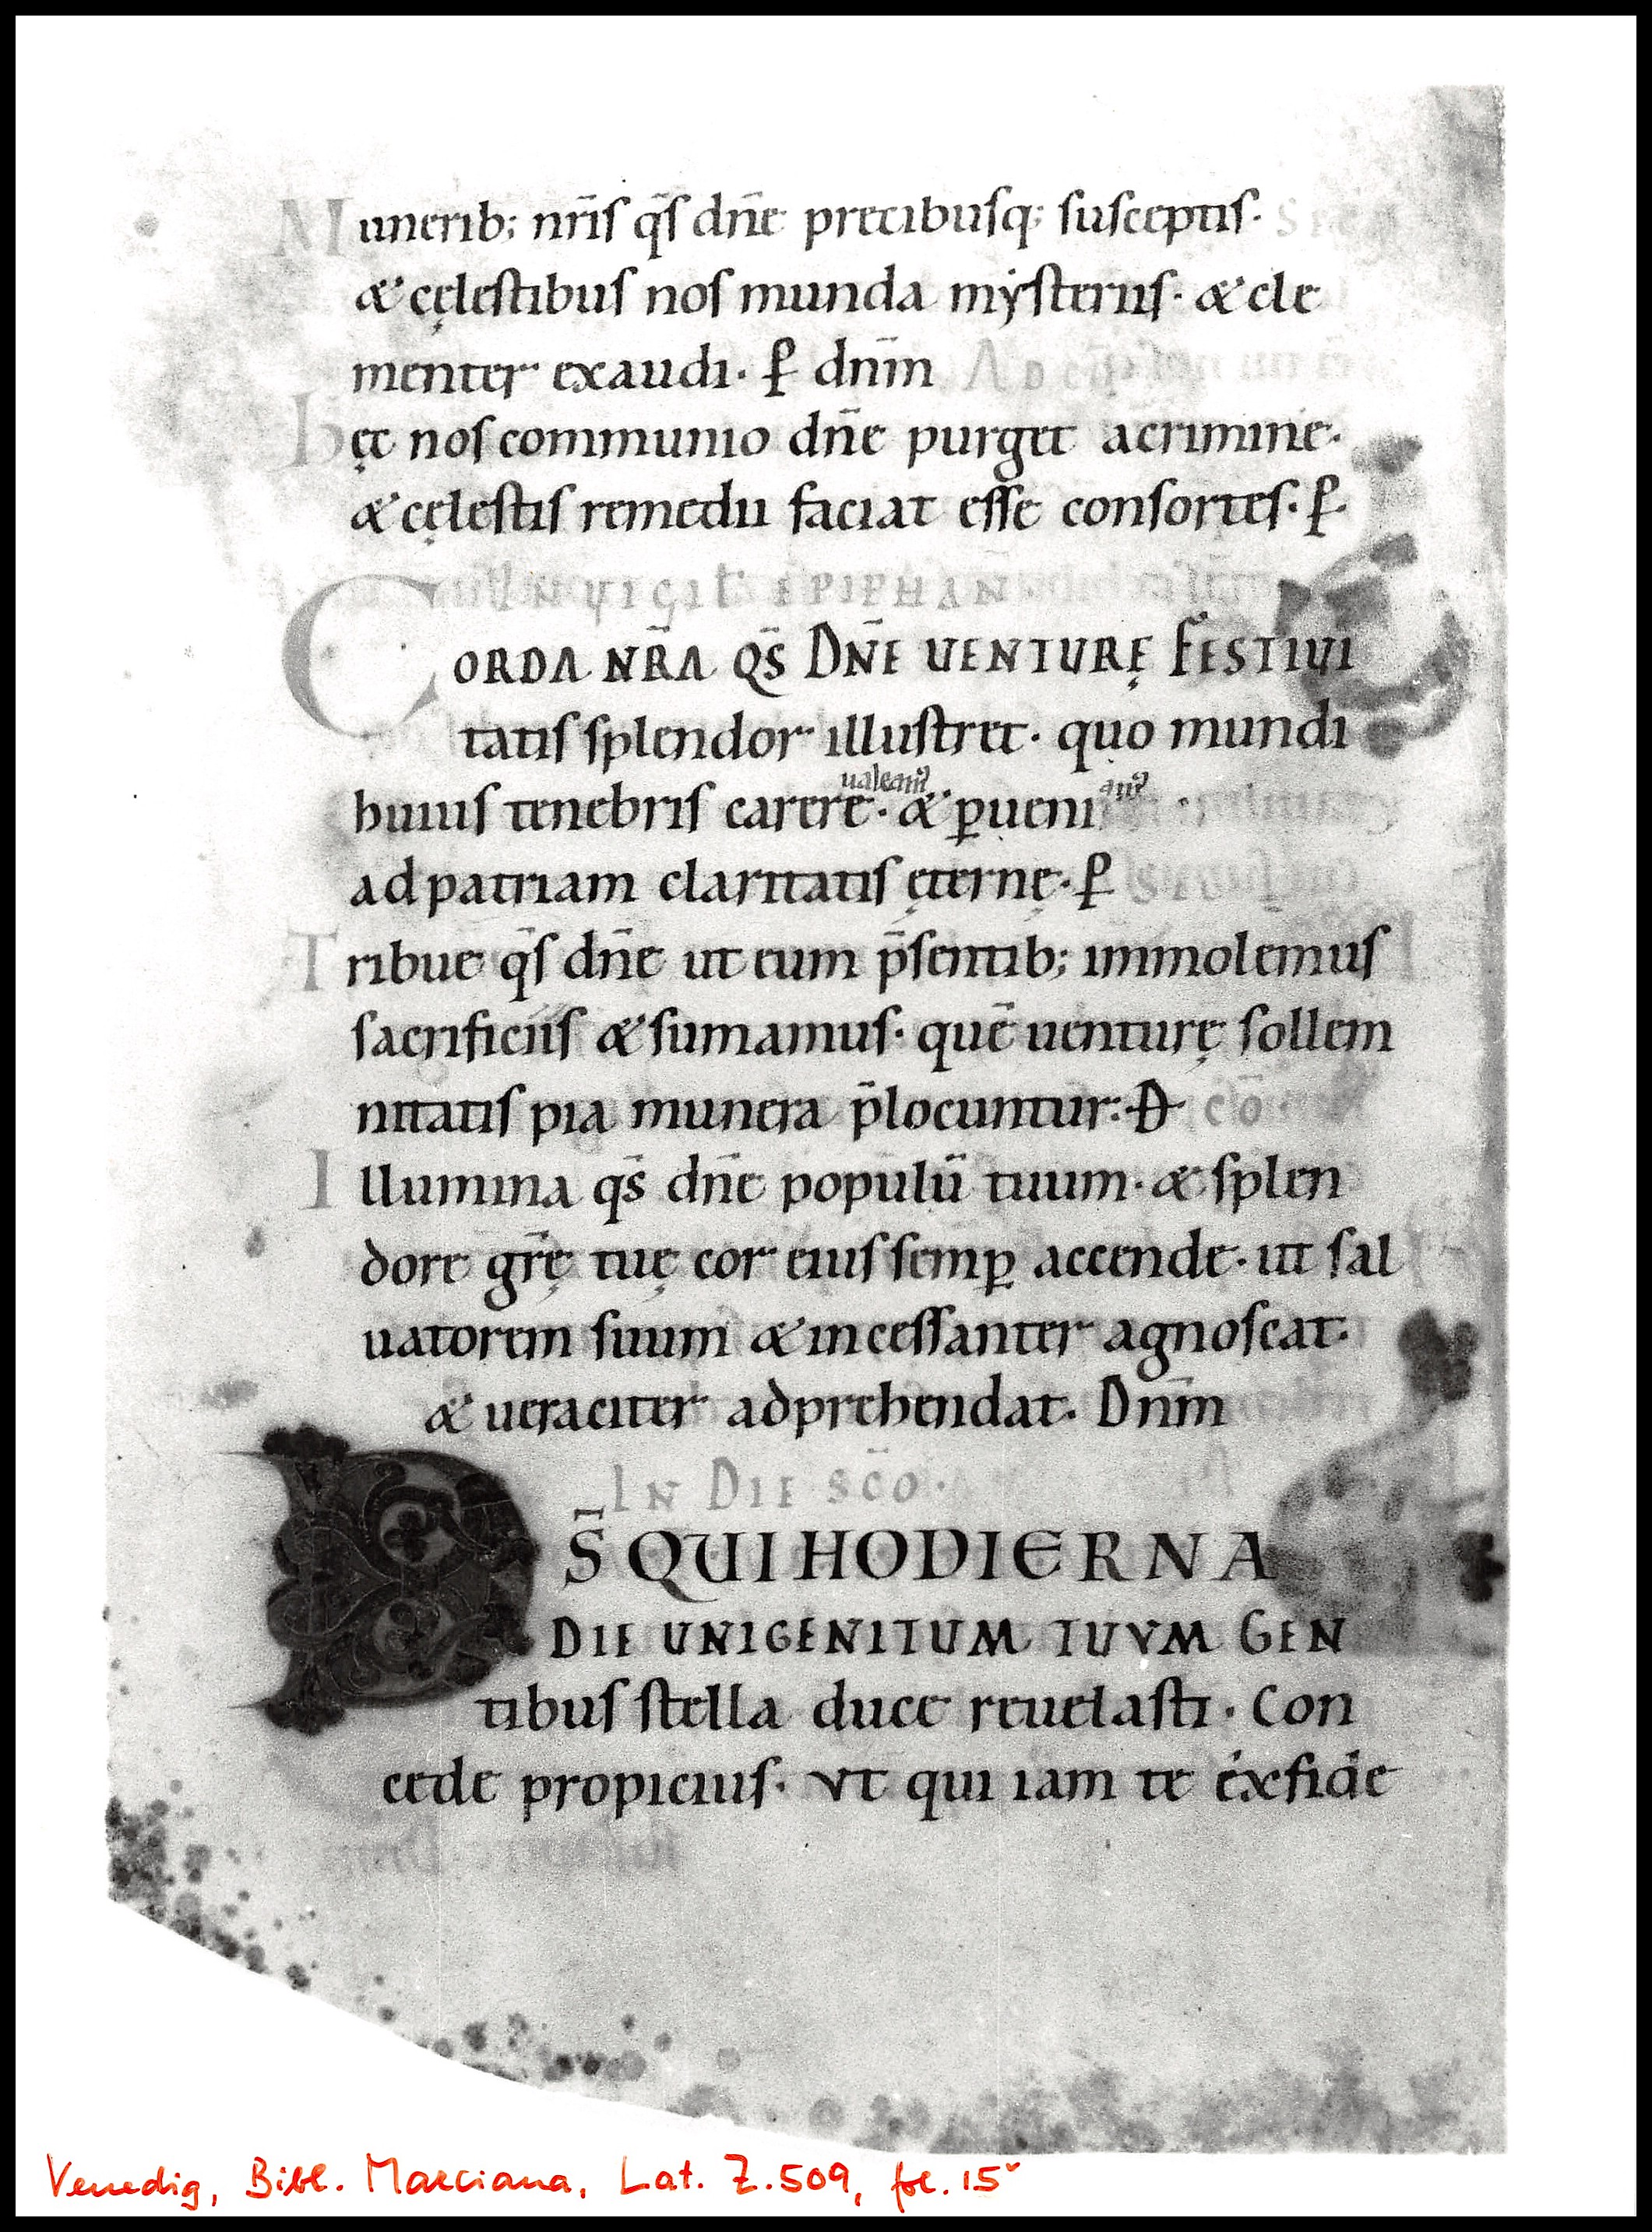 Munerib; nr̄is q̄s dn̄e precibusq; susceptis. Secr̄
& cęlestibus nos munda mẏsteriis. & cle
menter exaudi. ꝑ dnm̄ Ad
Hęc nos communio dn̄e purget acrimine.
& cęlestis remedii faciat esse consortes. ꝑ.
IN VIGIL EPIPHAN̄
CORDA NR̄A QS̄ DN̄E UENTURĘ FESTIUI
tatis splendor illustret. quo mundi
ualeamꝰ amꝰ
huius tenebris carere. & ꝑueni
ad patriam claritatis ęternę. ꝑ
Tribue q̄s dn̄e ut eum p̄sentib; immolemus
sacrificiis & sumamus. quē uenturę sollem
nitatis pia munera p̄locuntur: Đ CŌ
Illumina q̄s dn̄e populū tuum. & splen
dore gr̄ę tuę cor eius semꝑ accende. ut sal
uatorem suum & incessanter agnoscat.
& ueraciter adprehendat. Dnm̄
IN DIE SC̄O.
DS̄ QUI HODIERNA
DIE UNIGENITUM TUUM GEN
tibus stella duce reuelasti. Con
cede propicius. Ut qui iam te exfide
Venedig, Bibl. Marciana, Lat. Z.509, fol. 15v